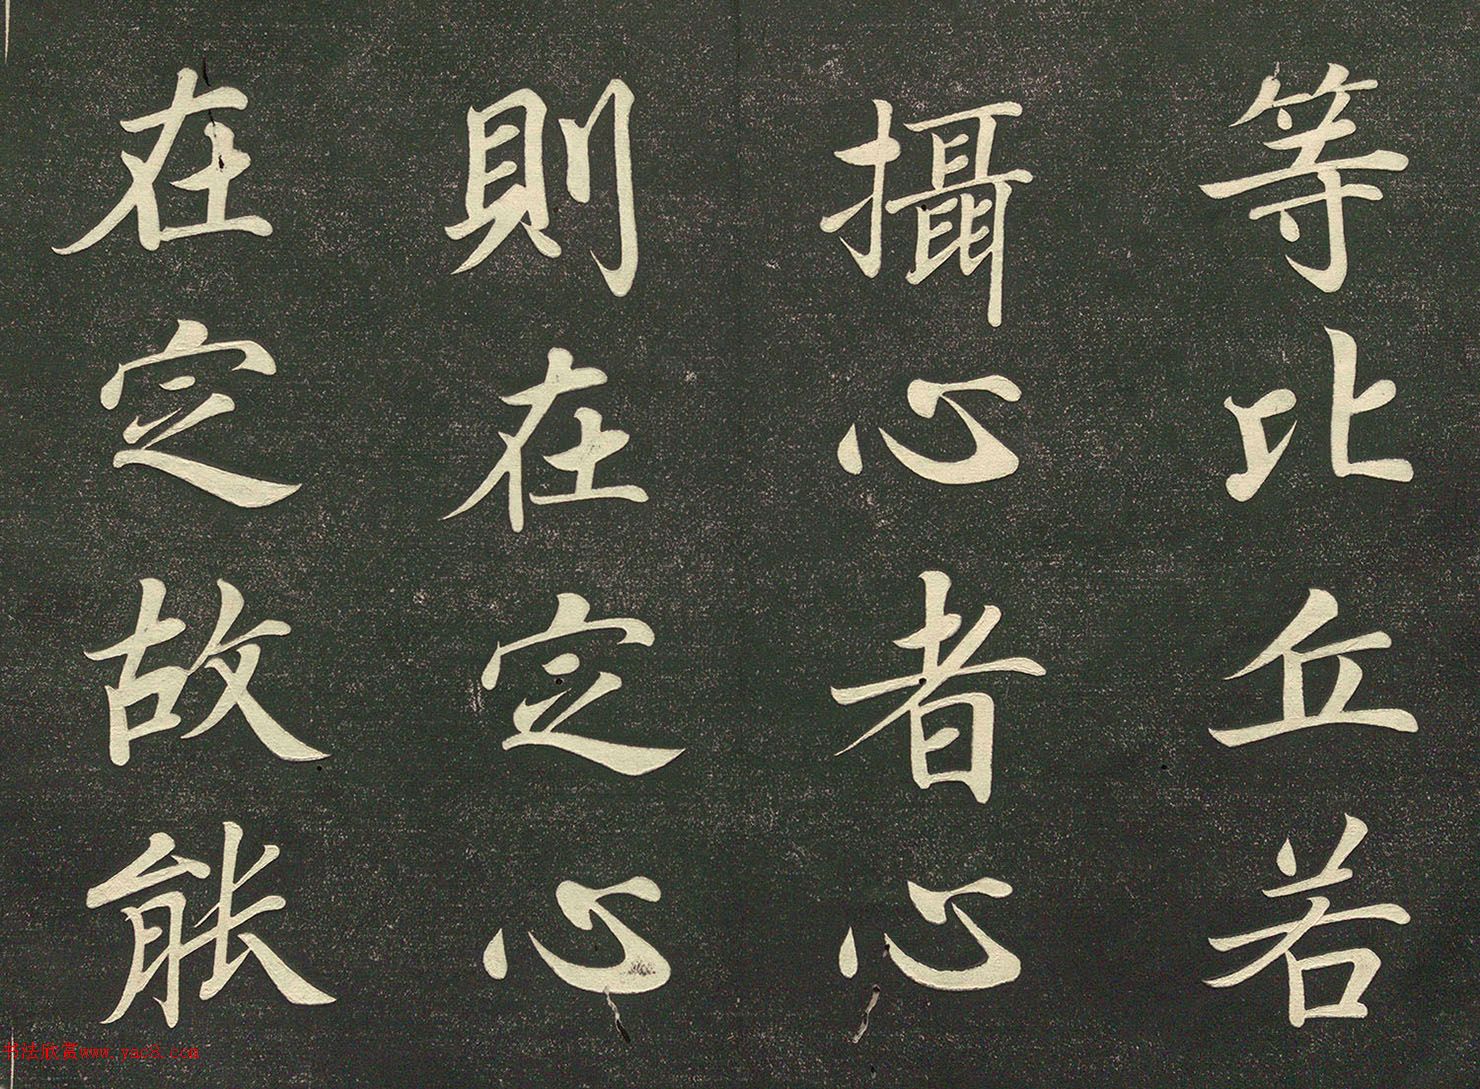 等比丘若
攝心者心
則在定心
在定故能
书法欣赏www.yac8.com